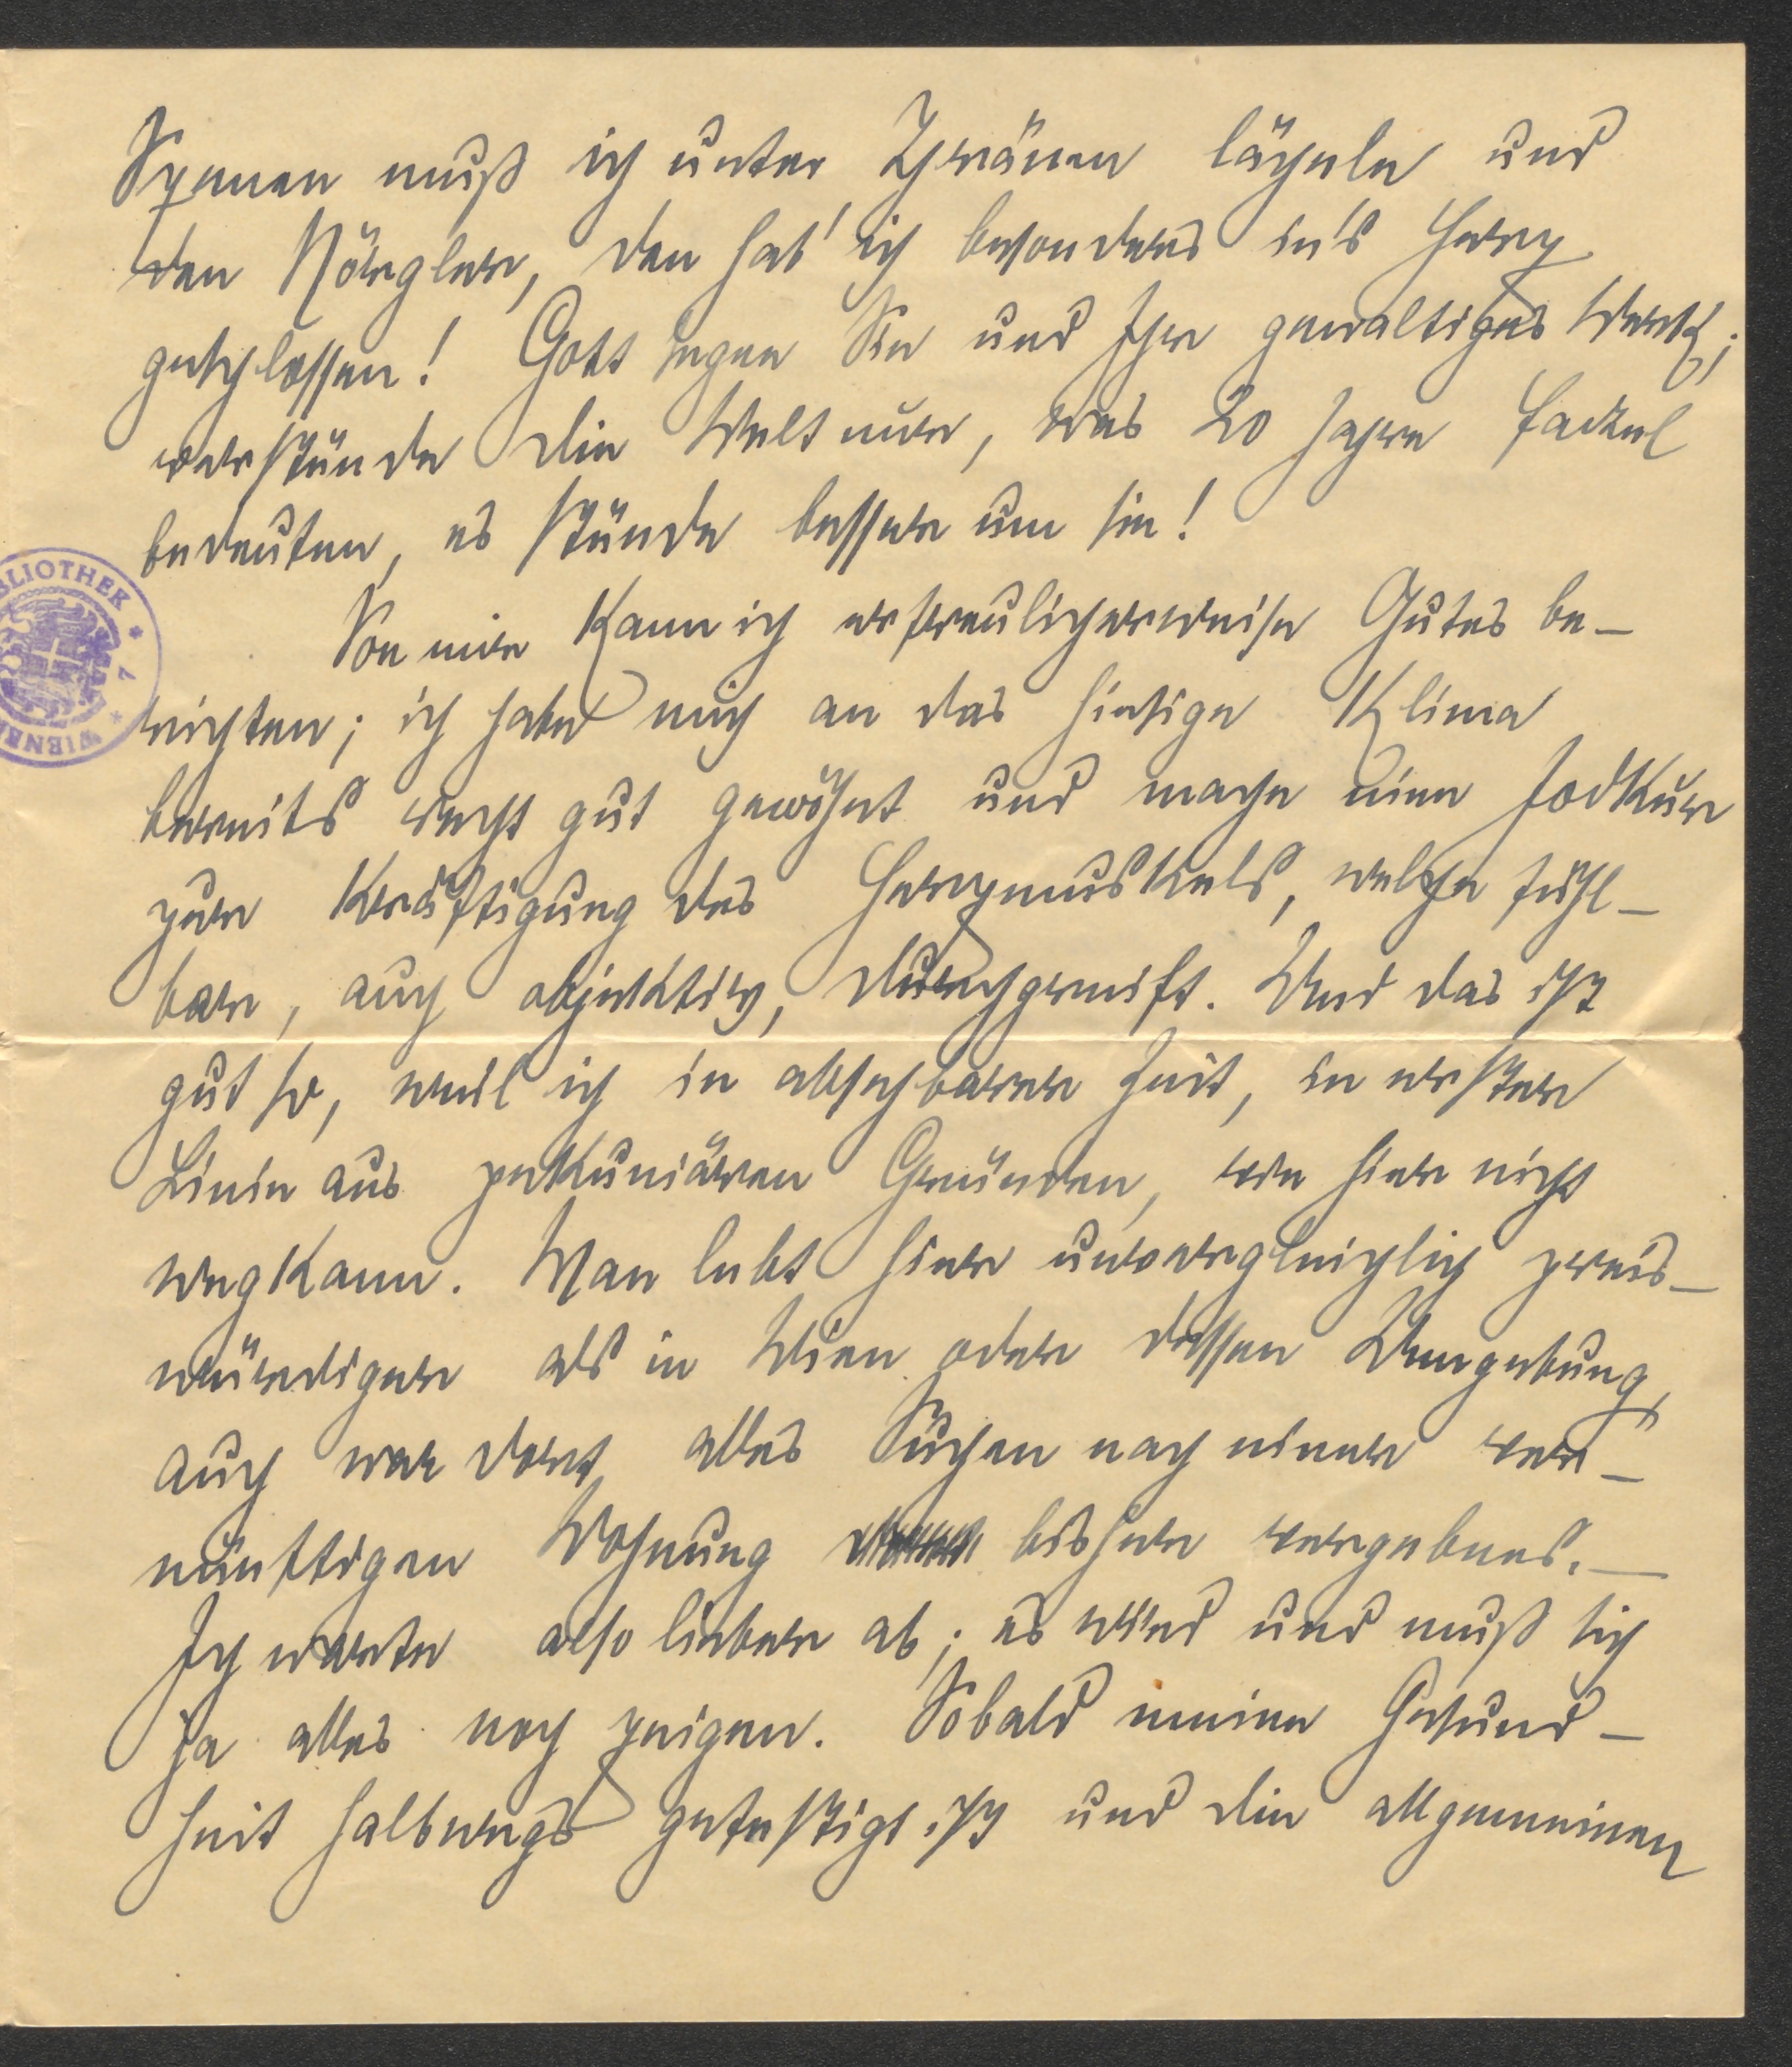 Szenen muß ich unter Thränen lächeln und
den Nörgler, den hab' ich besonders in's Herz
geschlossen! Gott segne Sie und Ihr gewaltiges Werk;
verstünde die Welt nur, was 20 Jahre Fackel
bedeuten, es stünde besser um sie!
Von mir kann ich erfreulicherweise Gutes be-
richten; ich habe mich an das hiesige Klima
bereits recht gut gewöhnt und mache eine Jodkur
zur Kräftigung des Herzmuskels, welche fühl-
bar, auch objektiv, durchgreift. Und das ist
gut so, weil ich in absehbarer Zeit, in erster
Linie aus pekuniären Gründen, von hier nicht
wegkann. Man lebt hier unvergleichlich preis-
würdiger als in Wien oder dessen Umgebung,
auch war dort alles Suchen nach einer ver-
nünftigen Wohnung bisher vergebens.—
Ich warte also lieber ab; es wird und muß sich
ja alles noch zeigen. Sobald meine Gesund-
heit halbwegs gefestigt ist und die allgemeinen
BLIOTHEK * 7 * WIENER